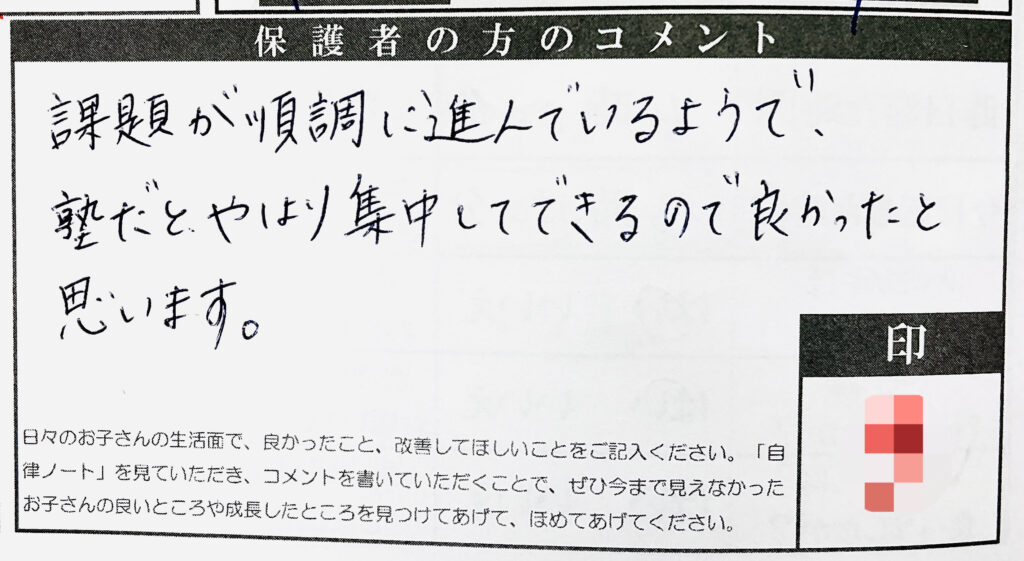 保護者の方のコメント
課題が順調に進んでいるようで、
塾だと、やはり集中してできるので良かったと
思います。
印
日々のお子さんの生活面で、良かったこと、改善してほしいことをご記入ください。「自
律ノート」を見ていただき、コメントを書いていただくことで、ぜひ今まで見えなかった
お子さんの良いところや成長したところを見つけてあげて、ほめてあげてください。